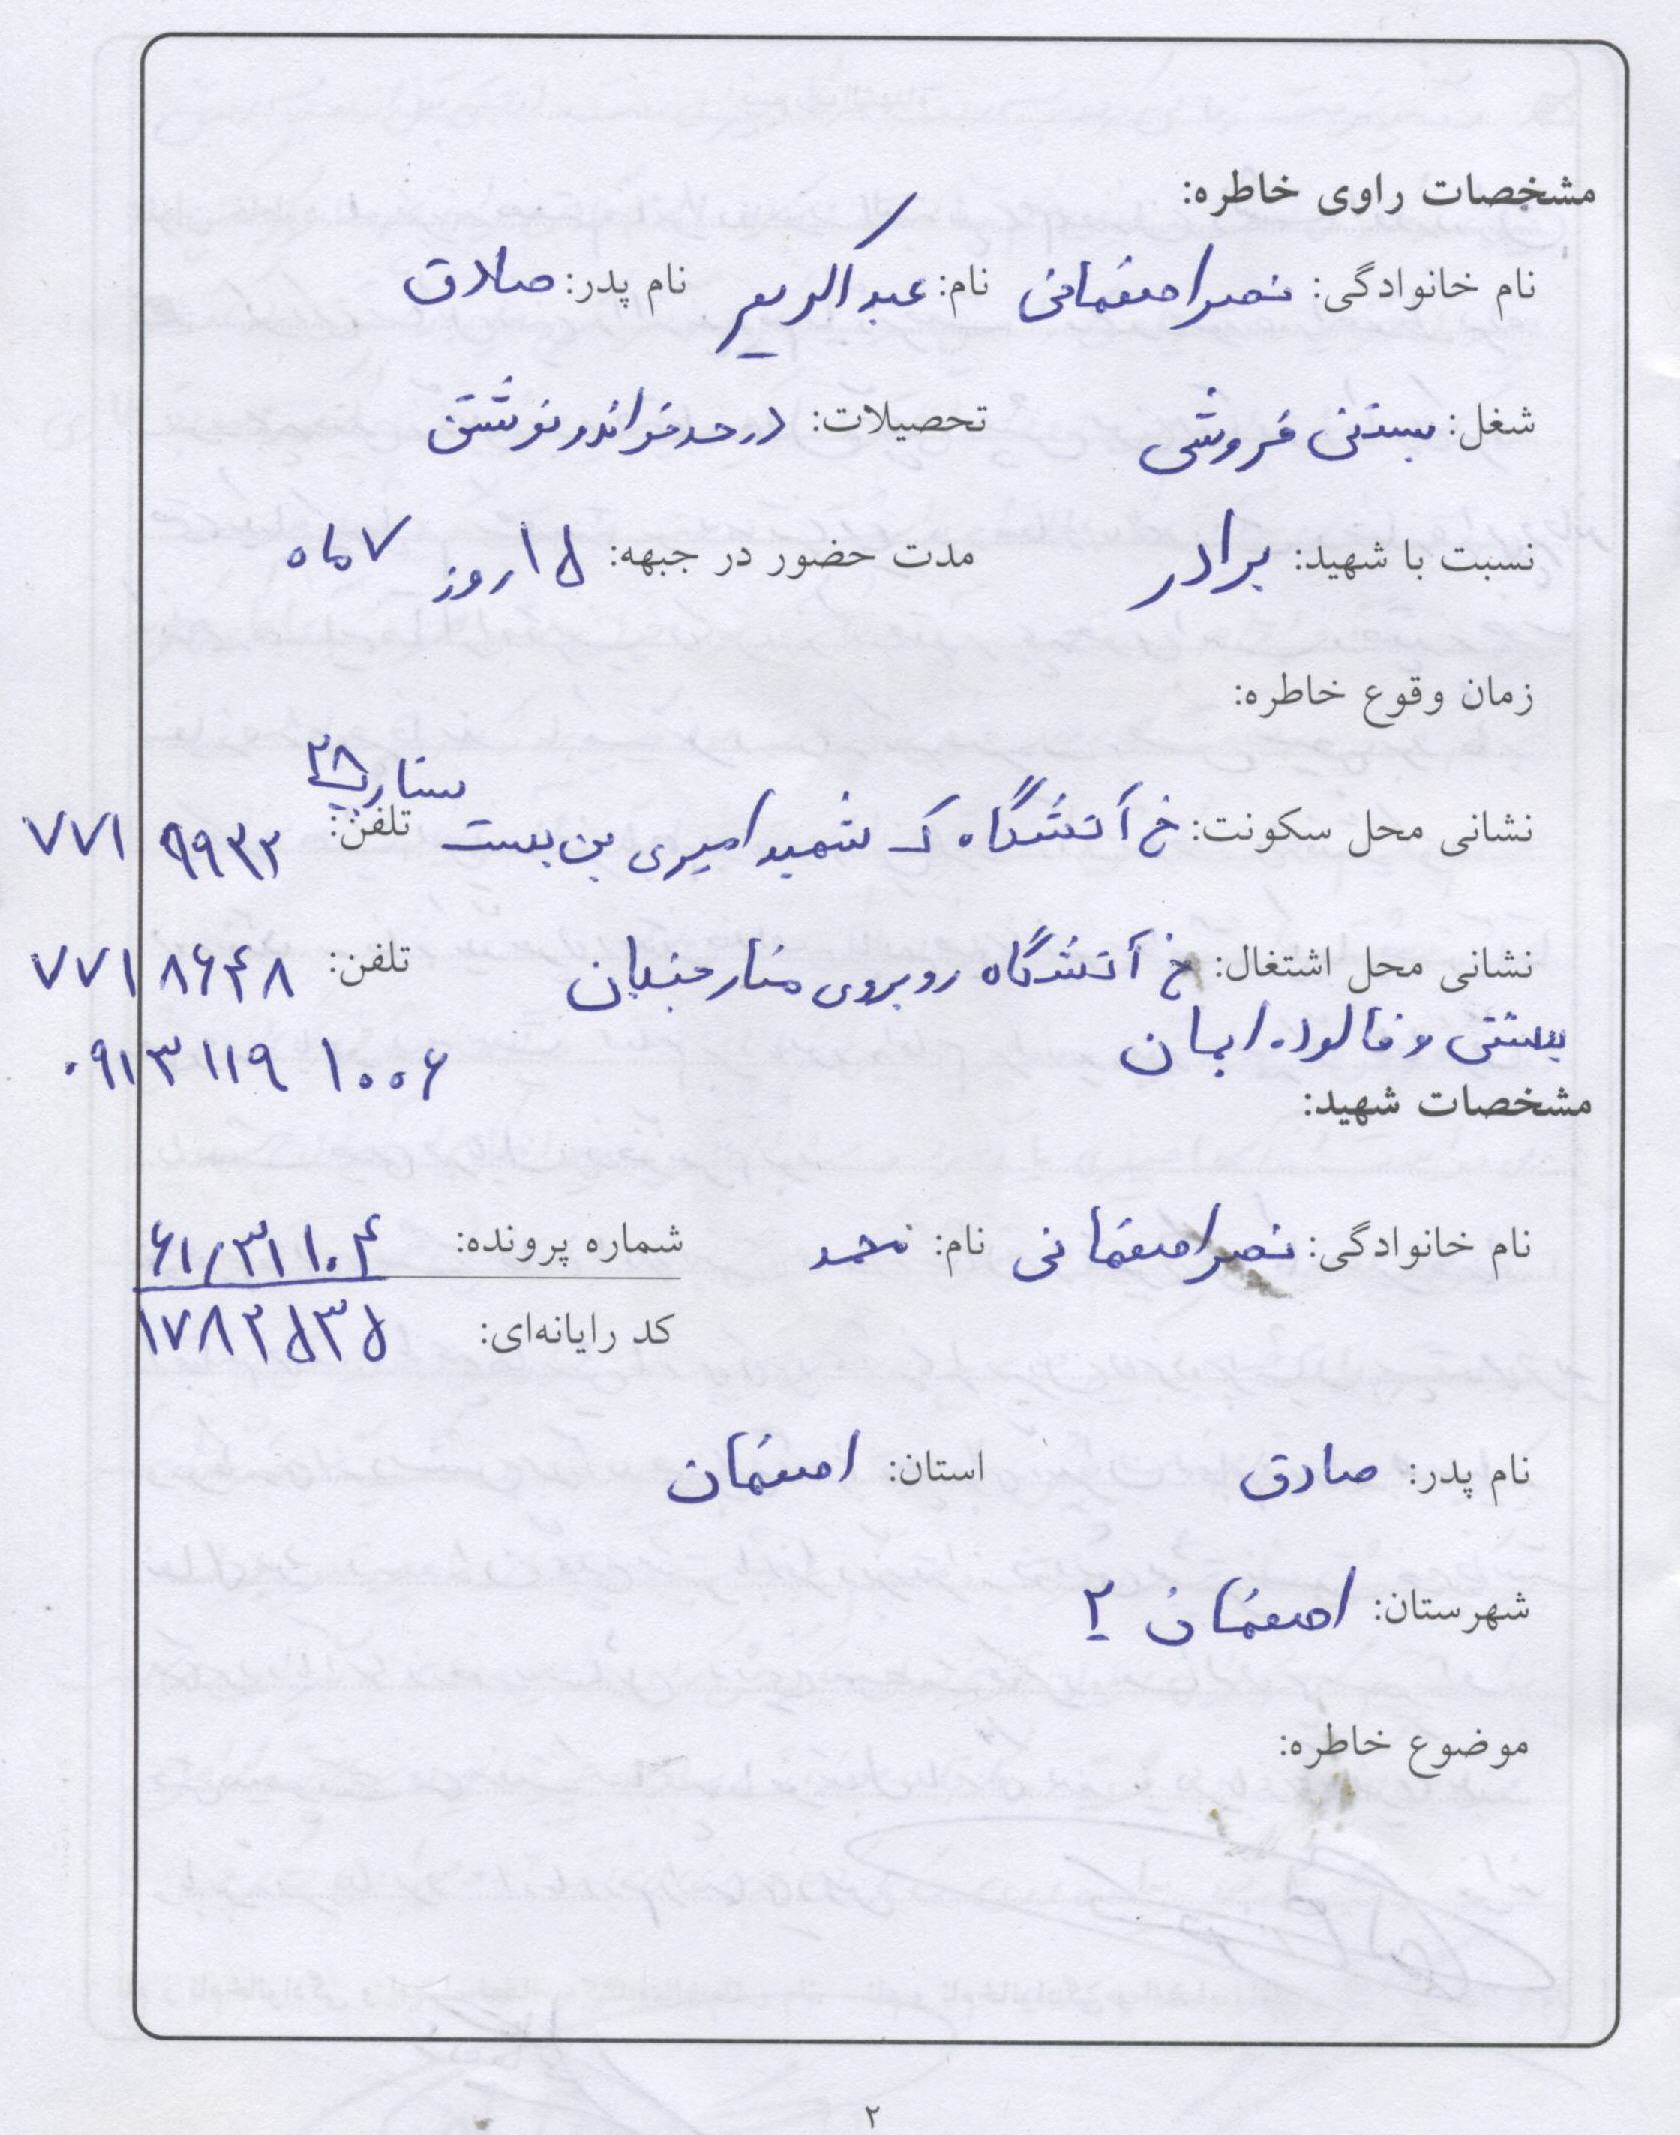 مشخصات راوی خاطره:
نام خانوادگی: نصراصفهانی نام: عبدالکریم نام پدر: صادق
شغل: بستنی فروشی تحصیلات: در حد خواندن و نوشتن
نسبت با شهید: برادر مدت حضور در جبهه: ۱۵ روز ۷ ماه
زمان وقوع خاطره:
نشانی محل سکونت: خ آتشگاه ک شهید امیری بن بست ۳۸ تلفن: ۷۷۱ ۹۹۳۳
نشانی محل اشتغال: خ آتشگاه روبروی منارجنبان تلفن: ۷۷۱ ۸۶۴۸
بستنی و فالوده ۰۹۱۳ ۱۱۹ ۱۰۰۶
مشخصات شهید:
نام خانوادگی: نصراصفهانی نام: محمد شماره پرونده: ۶۱/۳۱۱۰۴
کد رایانه‌ای: ۱۷۸۳۵۳۵
نام پدر: صادق استان: اصفهان
شهرستان: اصفهان ۲
موضوع خاطره:
۲